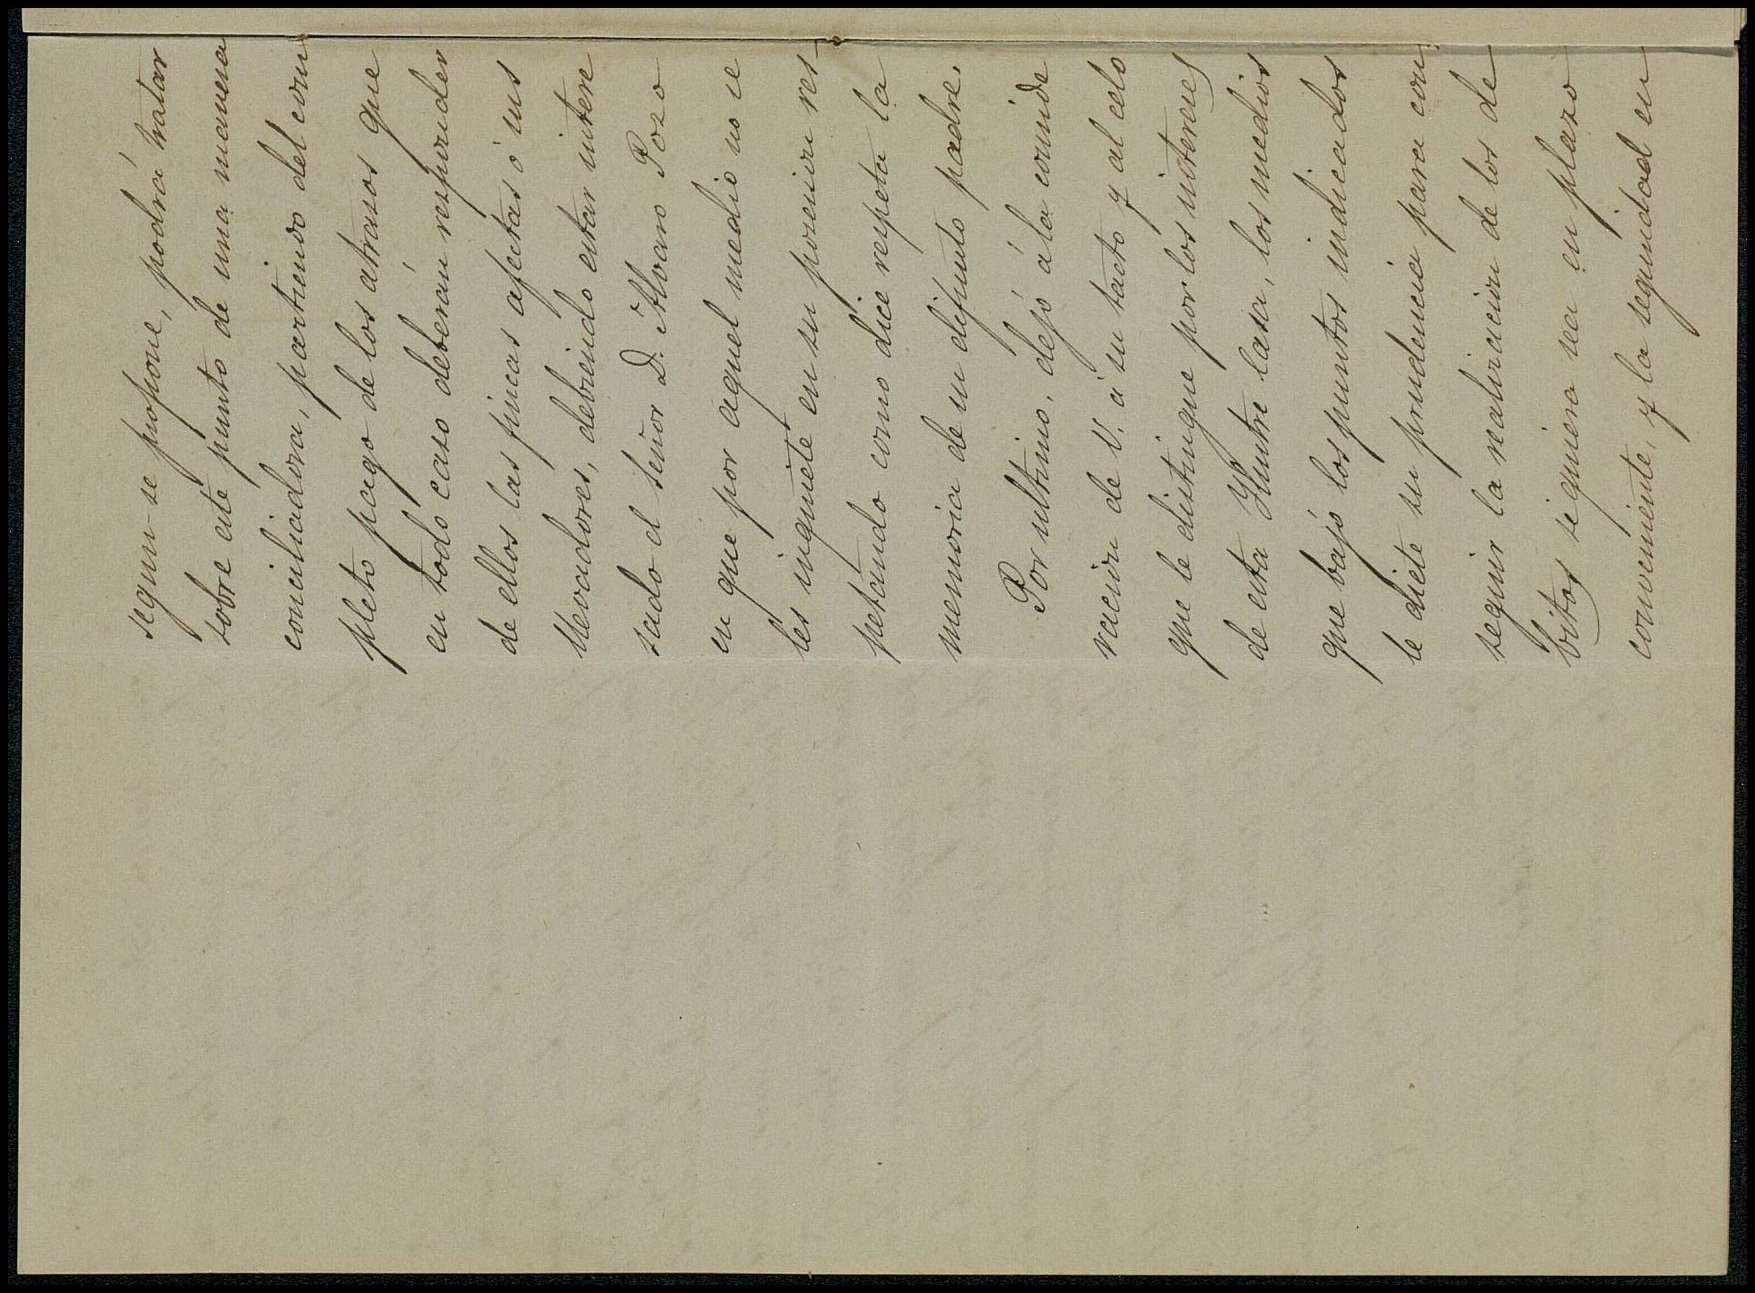 segun se propone, podrá tratar
sobre este punto de una manera
conciliadora, partiendo del com
pleto pago de los atrasos que
en todo caso deberán responder
de ellos las fincas afectas ó sus
llevadores, debiendo estar intere
sado el señor D. Alvaro Pozo
en que por aquel medio no se
les inquiete en su posesion res
petando como dice respeta la
memoria de su difunto padre.
Por ultimo, dejó á la conside
racion de V. á su tacto y al celo
que le distingue por los intereses
de esta Ilustre Casa, los medios
que bajo los puntos indicados
le dicte su prudencia para con
seguir la realizacion de los de
bitos siquiera sea en plazo
conveniente, y la seguridad en